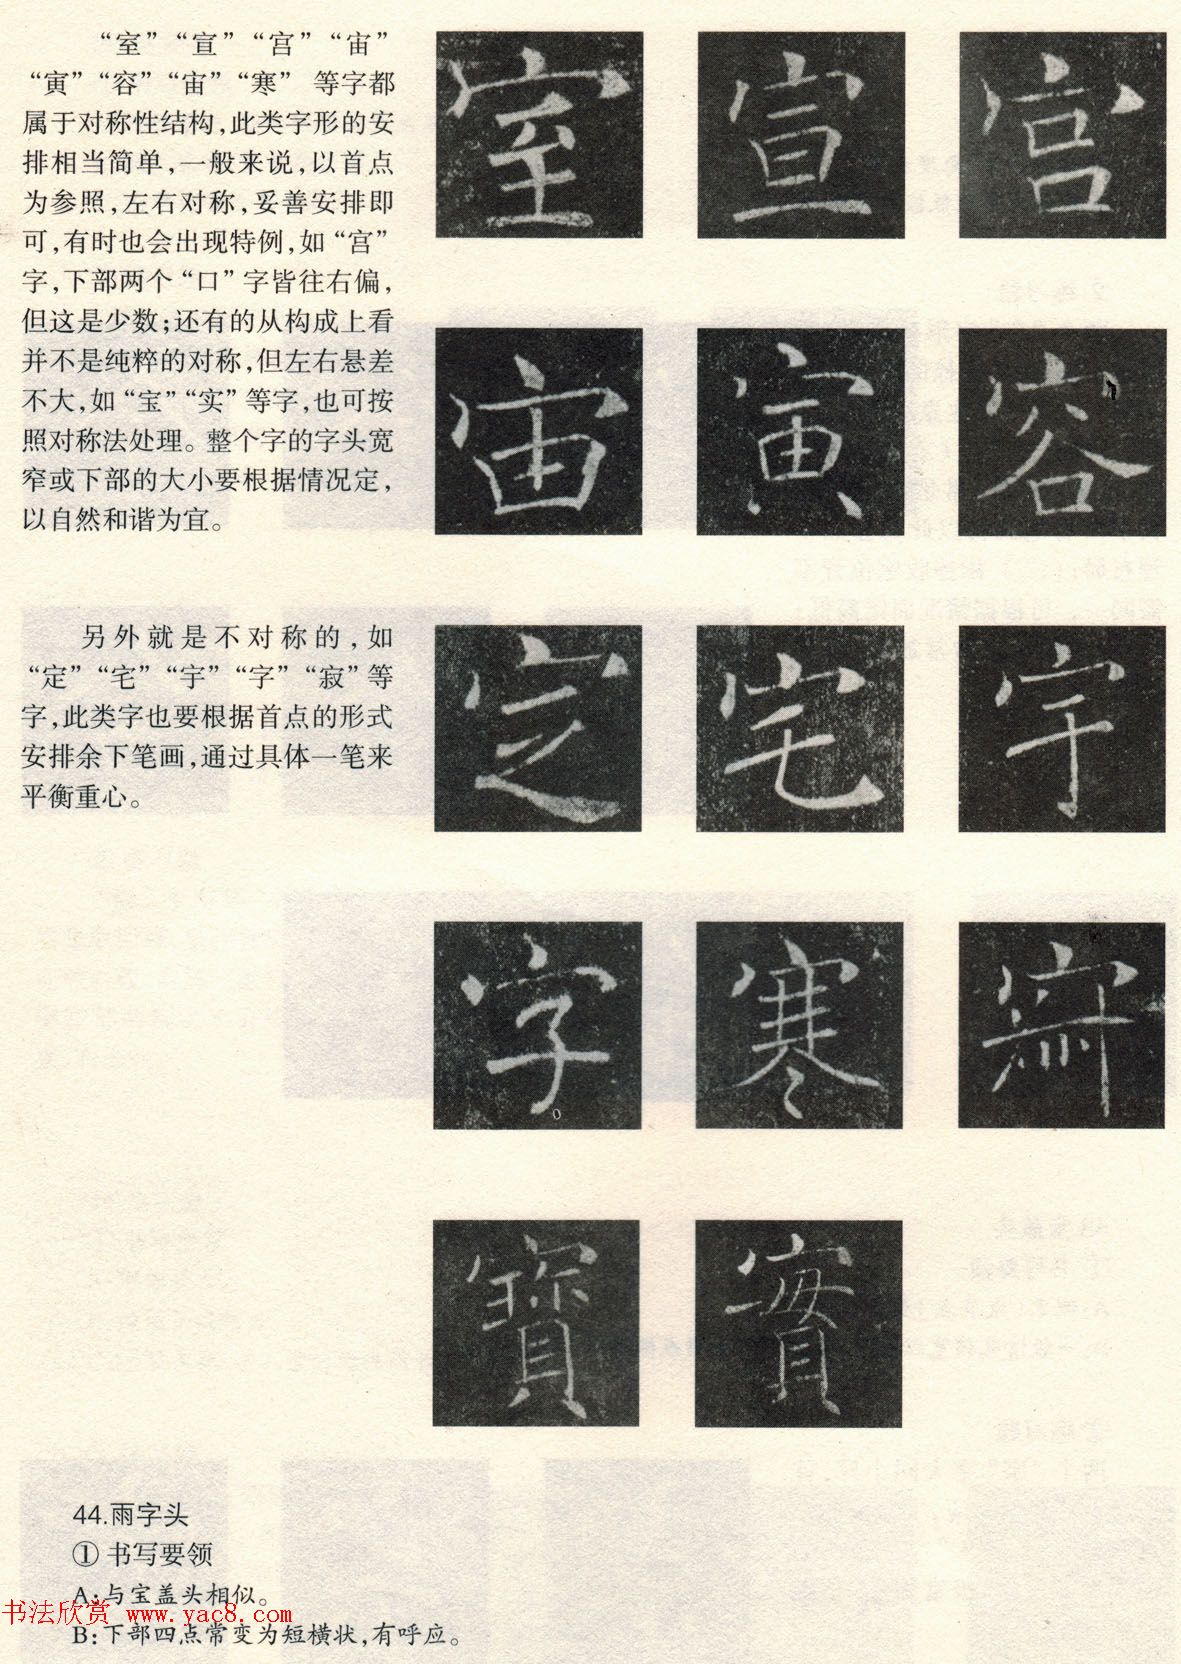 “室”“宣”“宫”“宙”
“寅”“容”“宙”“寒” 等字都
属于对称性结构,此类字形的安
排相当简单,一般来说,以首点
为参照,左右对称,妥善安排即
可,有时也会出现特例,如“宫”
字,下部两个“口”字皆往右偏,
但这是少数;还有的从构成上看
并不是纯粹的对称,但左右悬差
不大,如“宝”“实”等字,也可按
照对称法处理。整个字的字头宽
窄或下部的大小要根据情况定,
以自然和谐为宜。
室 宣 宫
宙 寅 容
另外就是不对称的,如
“定”“宅”“宇”“字”“寂”等
字,此类字也要根据首点的形式
安排余下笔画,通过具体一笔来
平衡重心。
定 宅 宇
字 寒
寶 實
44.雨字头
① 书写要领
A:与宝盖头相似。
书法欣赏 www.yac8.com
B:下部四点常变为短横状,有呼应。